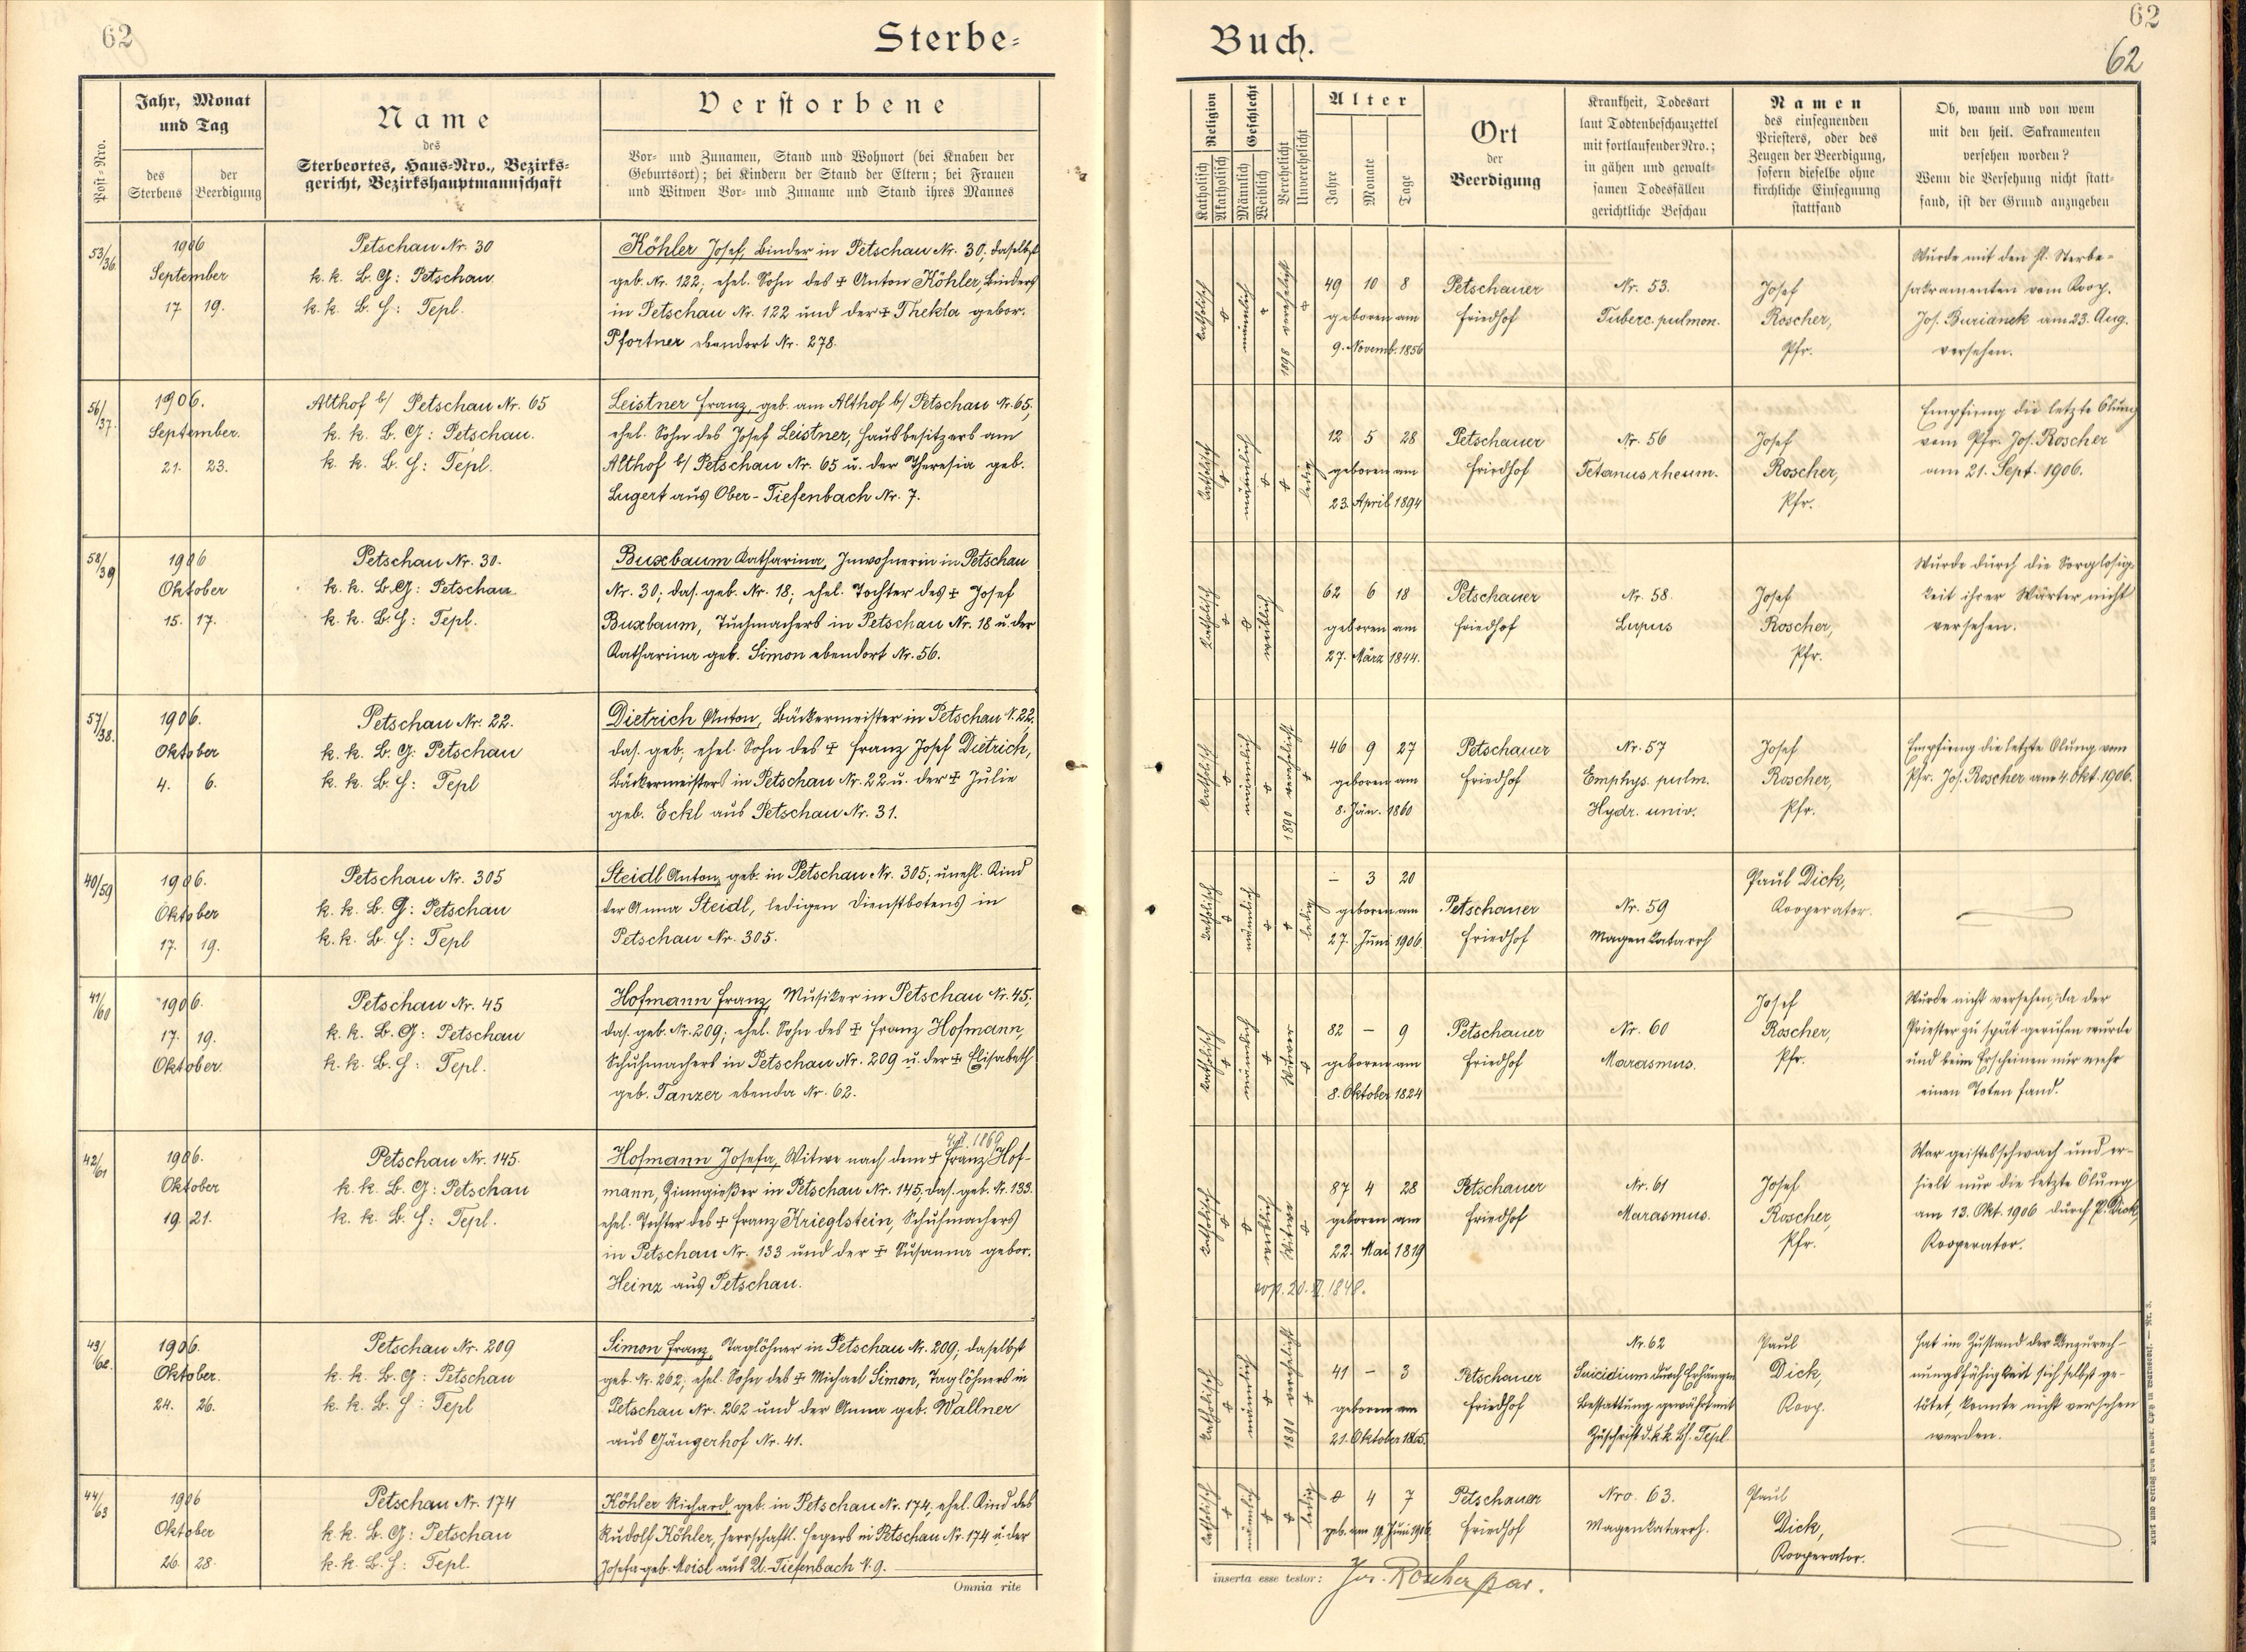 62
Sterbe-
Buch.
62
62
Post-Nro.
Jahr, Monat
und Tag
des
Sterbens
der
Beerdigung
Name
des
Sterbeortes, Haus-Nro., Bezirks-
gericht, Bezirkshauptmannschaft
Verstorbene
Vor- und Zunamen, Stand und Wohnort (bei Knaben der
Geburtsort); bei Kindern der Stand der Eltern; bei Frauen
und Witwen Vor- und Zuname und Stand ihres Mannes
Religion
Katholisch
Akatholisch
Geschlecht
Männlich
Weiblich
Verehelicht
Unverehelicht
Alter
Jahre
Monate
Tage
Ort
der
Beerdigung
Krankheit, Todesart
laut Todtenbeschauzettel
mit fortlaufender Nro.;
in gähen und gewalt-
samen Todesfällen
gerichtliche Beschau
Namen
des einsegnenden
Priesters, oder des
Zeugen der Beerdigung,
sofern dieselbe ohne
kirchliche Einsegnung
stattfand
Ob, wann und von wem
mit den heil. Sakramenten
versehen worden?
Wenn die Versehung nicht statt-
fand, ist der Grund anzugeben
53/36.
1906
September
17 19.
Petschau Nr. 30
k. k. B. G: Petschau
k. k. B. H: Tepl.
Köhler Josef, Binder in Petschau Nr. 30; daselbst
geb. Nr. 122; ehel. Sohn des ✝ Anton Köhler, Binders
in Petschau Nr. 122 und der ✝ Thekla gebor.
Pfortner ebendort Nr. 278.
katholisch
männlich
1898 verehelicht
49 10 8
geboren am
9. Novemb. 1856
Petschauer
Friedhof
Nr. 53.
Tuberc. pulmon.
Josef
Roscher,
Pfr.
Wurde mit den hl. Sterbe-
sakramenten vom Koop.
Jos. Burianek am 23. Aug.
versehen.
56/37.
1906.
September.
21. 23.
Althof b/ Petschau Nr. 65
k. k. B. G: Petschau.
k. k. B. H: Tepl.
Leistner Franz, geb. am Althof b/ Petschau Nr. 65;
ehel. Sohn des Josef Leistner, Hausbesitzers am
Althof b/ Petschau Nr. 65 u. der Theresia geb.
Lugert aus Ober-Tiefenbach Nr. 7.
katholisch
männlich
ledig
12 5 28
geboren am
23. April 1894
Petschauer
Friedhof
Nr. 56
Tetanus rheum.
Josef
Roscher,
Pfr.
Empfieng die letzte Ölung
vom Pfr. Jos. Roscher
am 21. Sept. 1906.
58/39
1906
Oktober
15. 17.
Petschau Nr. 30.
k. k. B. G: Petschau
k. k. B. H: Tepl.
Buxbaum Katharina, Inwohnerin in Petschau
Nr. 30; das. geb. Nr. 18; ehel. Tochter des ✝ Josef
Buxbaum, Tuchmachers in Petschau Nr. 18 u. der
Katharina geb. Simon ebendort Nr. 56.
katholisch
weiblich
62 6 18
geboren am
27. März 1844.
Petschauer
Friedhof
Nr. 58.
Lupus
Josef
Roscher,
Pfr.
Wurde durch die Sorglosig-
keit ihrer Wärter nicht
versehen.
57/38.
1906.
Oktober
4. 6.
Petschau Nr. 22.
k. k. B. G: Petschau
k. k. B. H: Tepl
Dietrich Anton, Bäckermeister in Petschau N. 22.
das. geb; ehel. Sohn des ✝ Franz Josef Dietrich,
Bäckermeisters in Petschau Nr. 22 u. der ✝ Julie
geb. Eckl aus Petschau Nr. 31.
katholisch
männlich
1890 verehelicht
46 9 27
geboren am
8. Jän. 1860
Petschauer
Friedhof
Nr. 57
Emphys. pulm.
Hydr. univ.
Josef
Roscher,
Pfr.
Empfieng die letzte Ölung vom
Pfr. Jos. Roscher am 4. Okt. 1906.
40/59
1906.
Oktober
17. 19.
Petschau Nr. 305
k. k. B. G: Petschau
k. k. B. H: Tepl
Steidl Anton, geb. in Petschau Nr. 305; unehl. Kind
der Anna Steidl, ledigen Dienstbotens in
Petschau Nr. 305.
katholisch
männlich
ledig
– 3 20
geboren am
27. Juni 1906.
Petschauer
Friedhof
Nr. 59
Magenkatarrh
Paul Dick,
Kooperator.
41/60
1906.
17. 19.
Oktober.
Petschau Nr. 45
k. k. B. G: Petschau
k. k. B. H: Tepl.
Hofmann Franz, Musiker in Petschau Nr. 45;
das. geb. Nr. 209; ehel. Sohn des ✝ Franz Hofmann,
Schuhmachers in Petschau Nr. 209 u. der ✝ Elisabeth
geb. Tanzer ebenda Nr. 62.
katholisch
männlich
Witwer
82 – 9
geboren am
8. Oktober 1824
Petschauer
Friedhof
Nr. 60
Marasmus.
Josef
Roscher,
Pfr.
Wurde nicht versehen, da der
Priester zu spät gerufen wurde
und beim Erscheinen nur mehr
einen Toten fand.
42/61
1906.
Oktober
19. 21.
Petschau Nr. 145.
k. k. B. G: Petschau
k. k. B. H: Tepl.
Hofmann Josefa, Witwe nach dem ✝ Franz Hof-
mann, Zinngießer in Petschau Nr. 145; das. geb. N. 133.
ehel. Tochter des ✝ Franz Krieglstein, Schuhmachers
in Petschau Nr. 133 und der ✝ Susanna gebor.
Heinz aus Petschau.
katholisch
weiblich
Witwe
87 4 28
geboren am
22. Mai 1819
cop. 20. II. 1848.
Petschauer
Friedhof
Nr. 61
Marasmus.
Josef
Roscher,
Pfr.
War geistesschwach und er-
hielt nur die letzte Ölung
am 13. Okt. 1906 durch P. Dick,
Kooperator.
43/62.
1906.
Oktober.
24. 26.
Petschau Nr. 209
k. k. B. G: Petschau
k. k. B. H: Tepl
Simon Franz, Taglöhner in Petschau Nr. 209; daselbst
geb. Nr. 262; ehel. Sohn des ✝ Michael Simon, Taglöhners in
Petschau Nr. 262 und der Anna geb. Wallner
aus Gängerhof Nr. 41.
katholisch
männlich
1891 verehelicht
41 – 3
geboren am
21. Oktober 1865.
Petschauer
Friedhof
Nr. 62
Suicidium durch Erhängen
Bestattung gewährt mit
Zuschrift d. k. k. BH. Tepl.
Paul
Dick,
Koop.
Hat im Zustand der Unzurech-
nungsfähigkeit sich selbst ge-
tötet, konnte nicht versehen
werden.
44/63
1906
Oktober
26. 28.
Petschau Nr. 174
k. k. B. G: Petschau
k. k. B. H: Tepl.
Köhler Richard, geb. in Petschau Nr. 174; ehel. Kind des
Rudolf Köhler, herrschaftl. Hegers in Petschau Nr. 174 u. der
Josefa geb. Moisl aus U.-Tiefenbach N. 9.
katholisch
männlich
ledig
0 4 7
geb. am 19. Juni 1906.
Petschauer
Friedhof
Nro. 63.
Magenkatarrh.
Paul
Dick,
Kooperator.
Omnia rite
inserta esse testor: Jos. Roscher par.